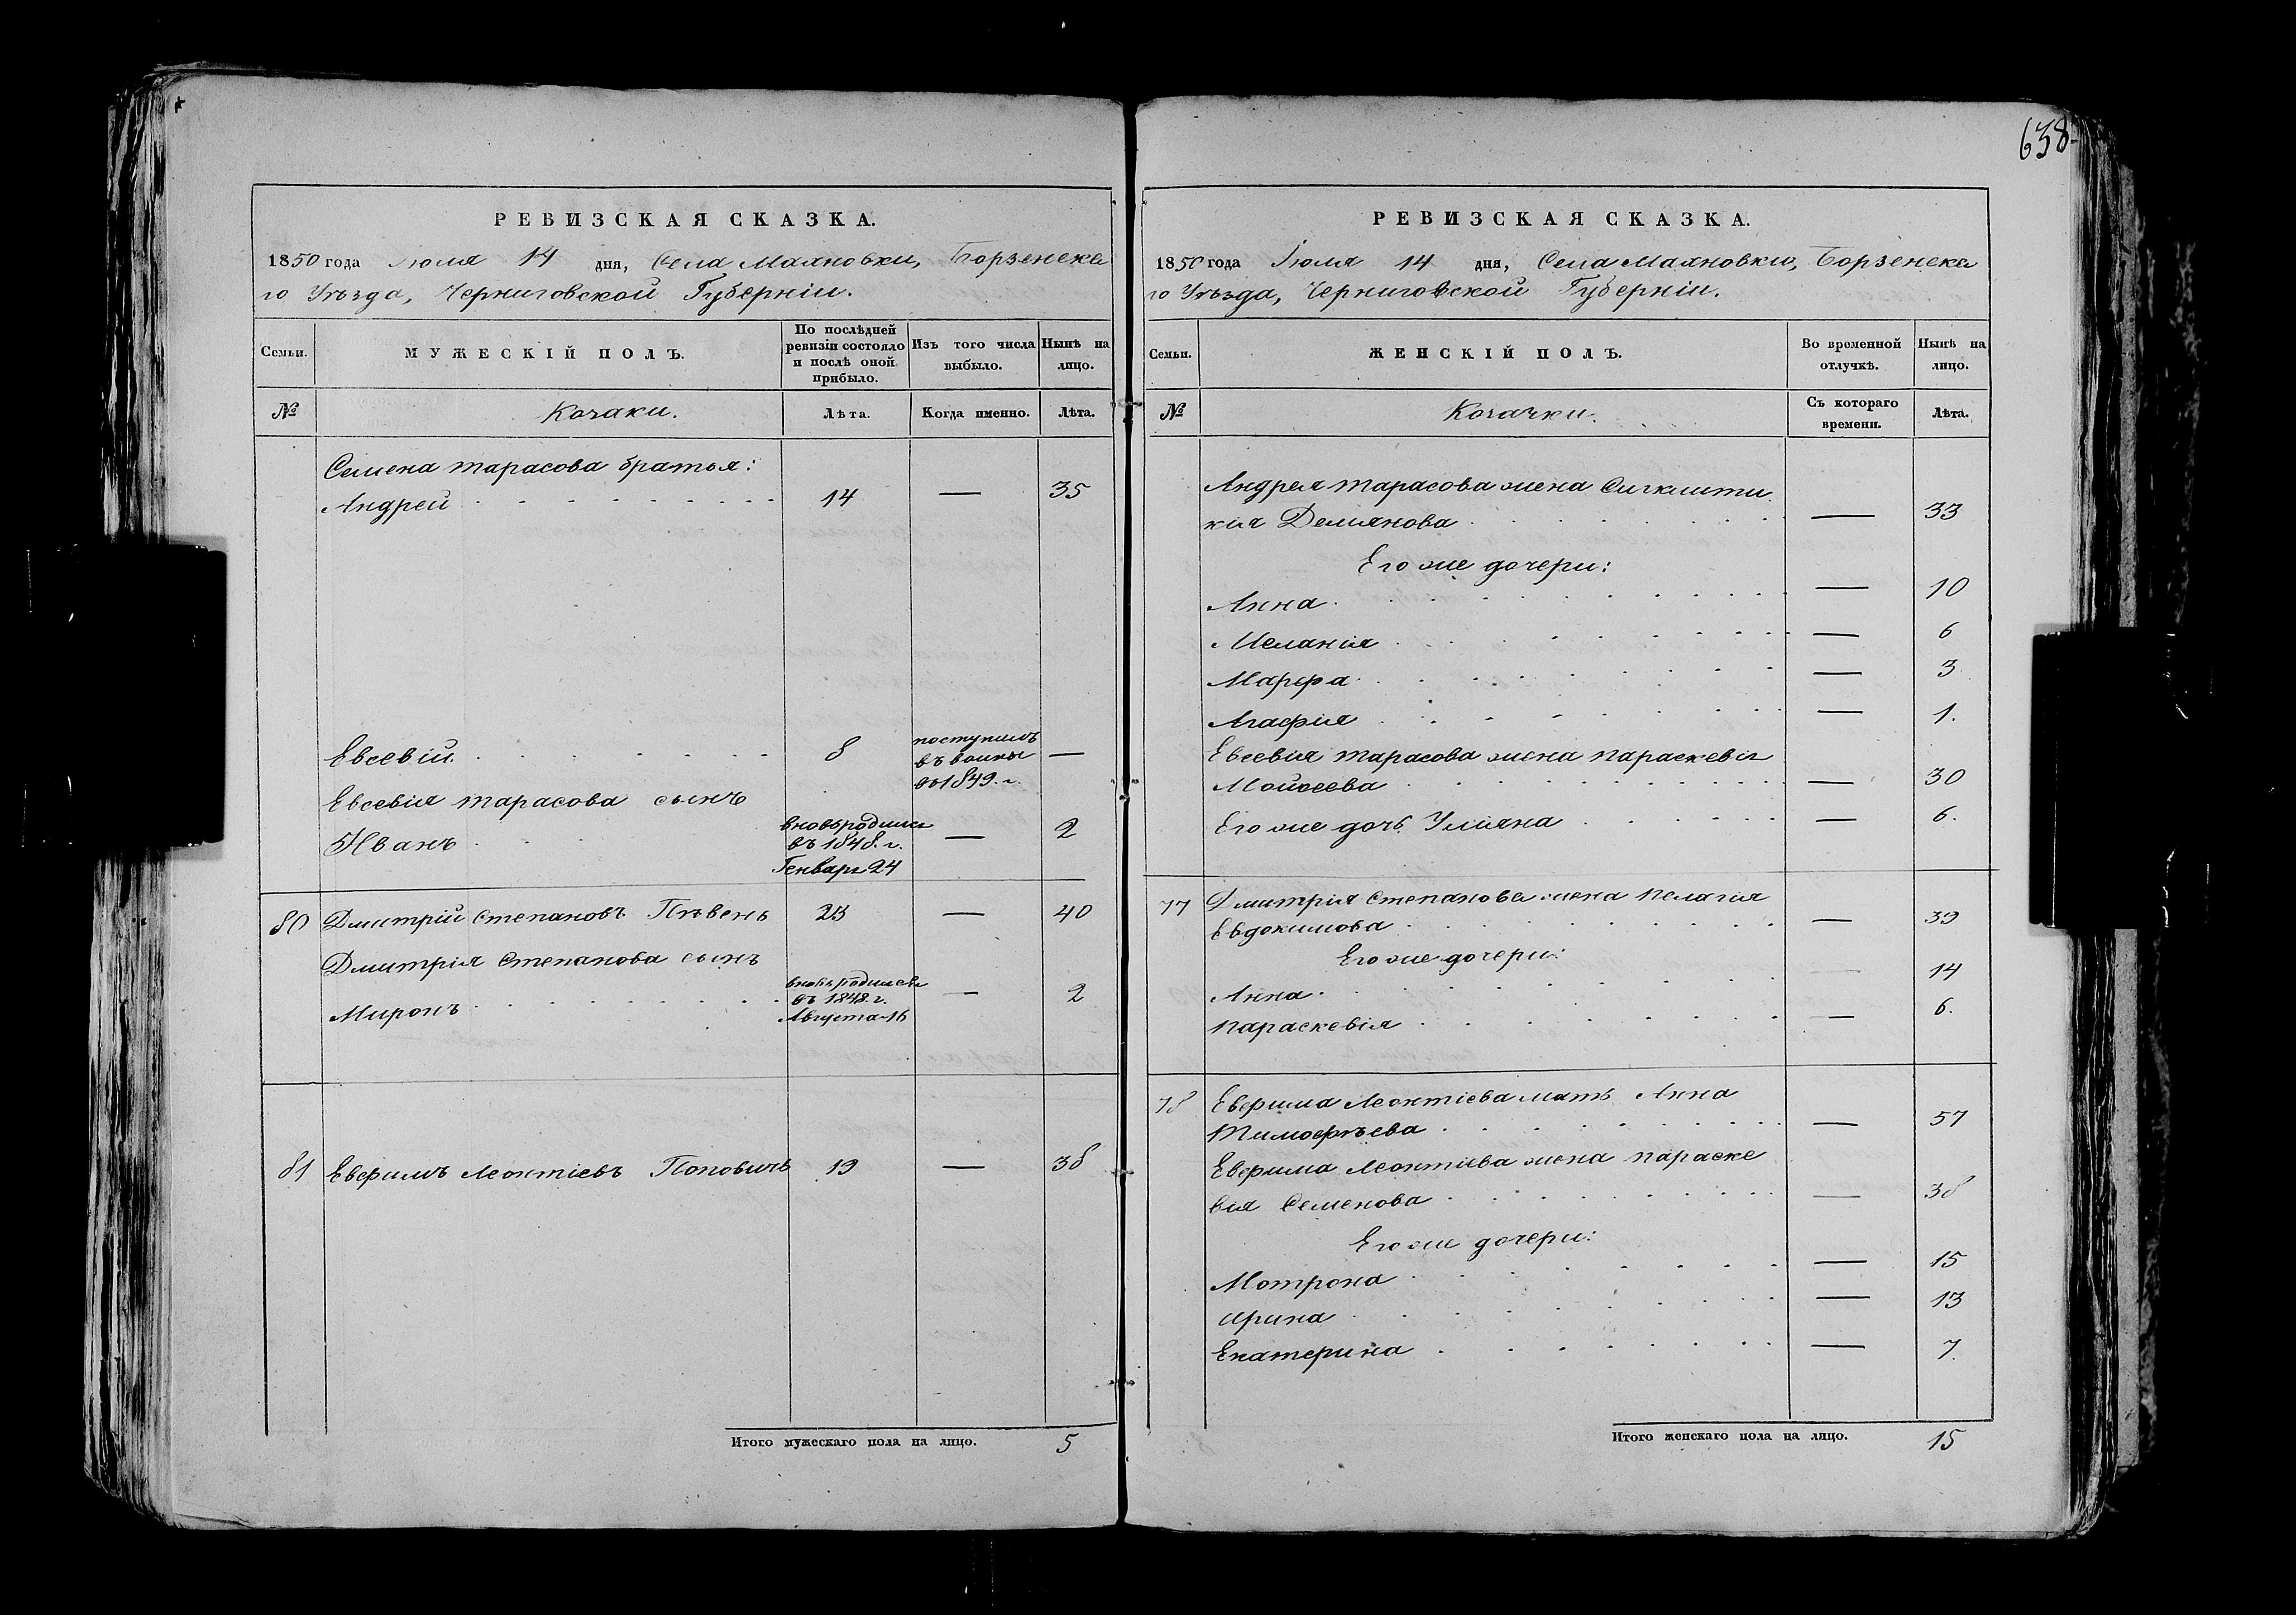 638
РЕВИЗСКАЯ СКАЗКА.
1850 года Июля 14 дня, Села Маяновки, Борзенска
го Уѣзда, Черниговской Губерніи.
Семьи.
МУЖЕСКІЙ ПОЛЪ.
По послѣдней ревизіи состояло и послѣ оной прибыло.
Изъ того числа выбыло.
Нынѣ на лицо.
№
Козаки.
Лѣта.
Когда именно.
Лѣта.
Семена Тарасова братья:
Андрей 14 — 35
Евсевій 8 поступилъ въ воины въ 1849. г. —
Евсевія Тарасова сынъ
Иванъ вновь родился въ 1848. г. Генваря 24 — 2
80 Дмитрій Степановъ Пѣвень 23 — 40
Дмитрія Степанова сынъ
Миронъ вновь родился въ 1848. г. Августа 16 — 2
81 Евфимъ Леонтіевъ Поповичъ 19 — 38
Итого мужескаго пола на лицо. 5
РЕВИЗСКАЯ СКАЗКА.
1850 года Іюля 14 дня, Села Маяновки, Борзенска
го Уѣзда, Черниговской Губерніи.
Семьи.
ЖЕНСКІЙ ПОЛЪ.
Во временной отлучкѣ.
Нынѣ на лицо.
№
Козачки.
Съ котораго времени.
Лѣта.
Андрея Тарасова жена
кія Демянова — 33
Его же дочери:
Анна — 10
Меланія — 6
Марфа — 3
Агафія — 1.
Евсевія Тарасова жена Параскевія
Мойсеева — 30
Его же дочь Уліяна — 6.
77 Дмитрія Степанова жена Пелагія
Евдокимова — 39
Его же дочери:
Анна — 14
Параскевія — 6.
78 Евфима Леонтіева мать Анна
Тимофѣева — 57
Евфима Леонтіева жена Параске
вія Семенова — 38
Его же дочери:
Мотрона — 15
Ирина — 13
Екатерина — 7.
Итого женскаго пола на лицо. 15